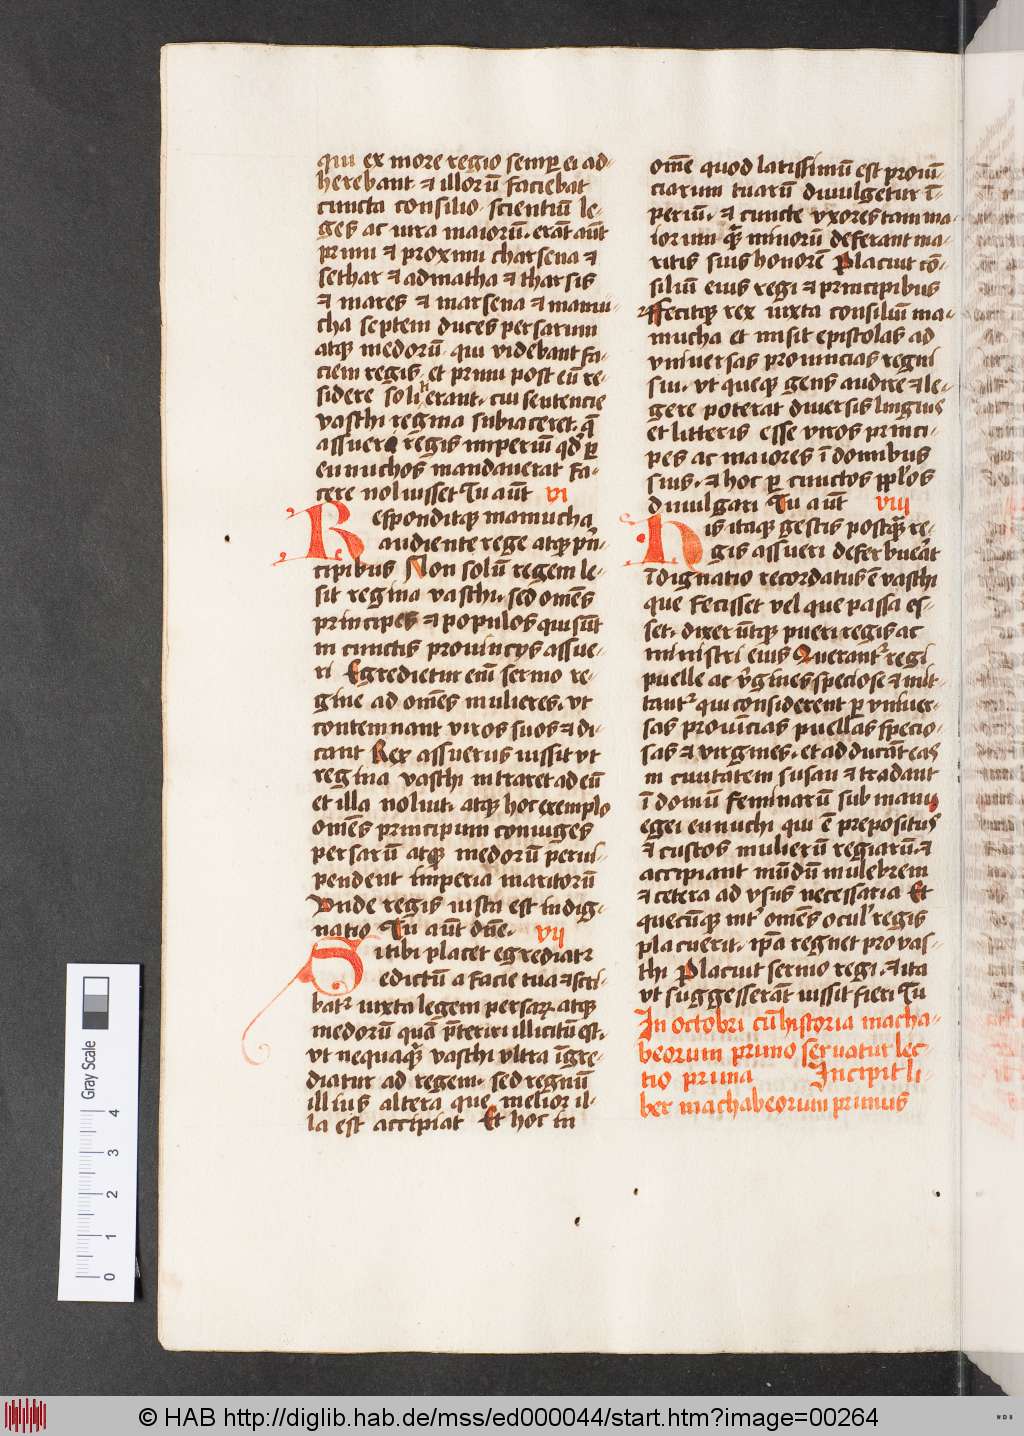 qui ex more regio semp̲ ei ad-
herebant · ⁊ illorū faciebat
cuncta consilio · scientiū le-
ges ac iura maiorū · erāt aūt
primi ⁊ proximi charsena ⁊
sethar ⁊ admatha ⁊ tharsis
⁊ mares ⁊ marsena ⁊ mamu-
cha septem duces persarum
atqꝫ medorū · qui videbant fa-
ciem regis · et primi post eū re-
sidere soliti erant · cui sentencie
vasthi regina subiaceret · q̄
assueri regis imperiū qd̓ ꝑ
eunuchos mandauerat fa-
cere noluisset Tu aūt vi
Responditqꝫ mamucha
audiente rege atqꝫ pn̄-
cipibus Non solū regem le-
sit regina vasthi · sed om̄es
principes ⁊ populos qui sūt
in cunctis prouincijs assue-
ri Egredietur eni̅ sermo re-
gine ad om̄es mulieres · vt
contemnant viros suos ⁊ di-
cant Rex assuerus iussit vt
regina vasthi intraret ad eū
et illa noluit · atqꝫ hoc exemplo
om̄es principum coniuges
persarū atqꝫ medorū p̄erui-
pendent imperia maritorū
Vnde regis iusta est indig-
natio Tu aūt dn̄e · vij
Si tibi placet egrediatr
edictū a facie tua ⁊ scri-
batr iuxta legem persaꝝ atqꝫ
medorū quā p̄teriri illicitū est ·
vt nequaqꝫ̄ vasthi vltra īgre-
diatur ad regem · sed regnū
illius altera que melior il-
la est accipiat Et hoc in
om̄e quod latissimū est prouī-
ciarum tuarū diuulgetur ī-
periū · ⁊ cuncte vxores tam ma-
iorum qꝫ̄ minorū deferant ma-
ritis suis honorē Placuit cō-
siliū eius regi ⁊ principibus
ffecitqꝫ rex iuxta consiliū ma-
mucha et misit epistolas ad
vniuersas prouincias regni
sui · vt queqꝫ gens audire ⁊ le-
gere poterat diuersis linguis
et litteris esse viros princi-
pes ac maiores ī domibus
suis · ⁊ hoc ꝑ cunctos ppl̓os
diuulgari Tu aūt viii
His itaqꝫ gestis postqꝫ̄ re-
gis assueri deferbuerat
īdignatio recordatus ē vasthi
que fecisset vel que passa es-
set · dixer ūtqꝫ pueri regis ac
ministri eius Querant̓ regi
puelle ac v̓gines speciose ⁊ mit-
tant̓ qui considerent ꝑ vniuer-
sas prouīcias puellas specio-
sas ⁊ virgines · et adducāt eas
in ciuitatem susan ⁊ tradant
ī domū feminarū sub manu
egei eunuchi qui ē prepositus
⁊ custos mulierū regiarū · ⁊
accipiant mūdū mulebrem
⁊ cetera ad vsus necessaria Et
quecūqꝫ int̓ om̄es ocul̓ regis
placuerit · ip̄a regnet pro vas-
thi Placuit sermo regi · ⁊ ita
vt suggesserāt iussit fieri Tu
In octobri cū historia macha-
beorum primo seruatur lec-
tio prima Incipit li-
ber machabeorum primus
Gray Scale
0 1 2 3 4
© HAB http://diglib.hab.de/mss/ed000044/start.htm?image=00264